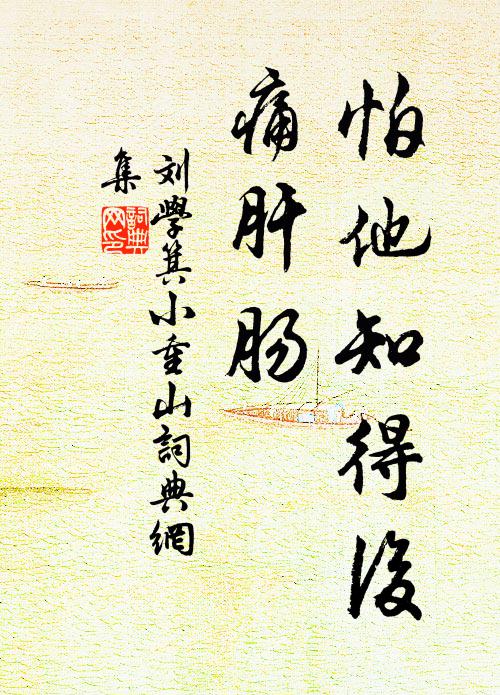 怕他知得後
痛肝肠
刘學箕小重山詞典網
集
詞典
网印